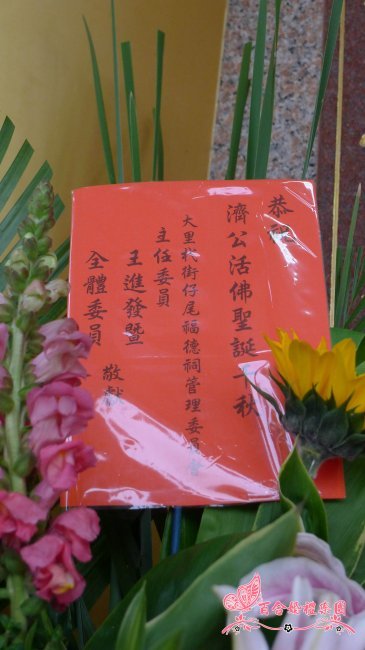 恭祝
濟公活佛聖誕千秋
大里杙街仔尾福德祠管理委員會
主任委員
王進發暨
全體委員
敬獻
百合婚禮樂團